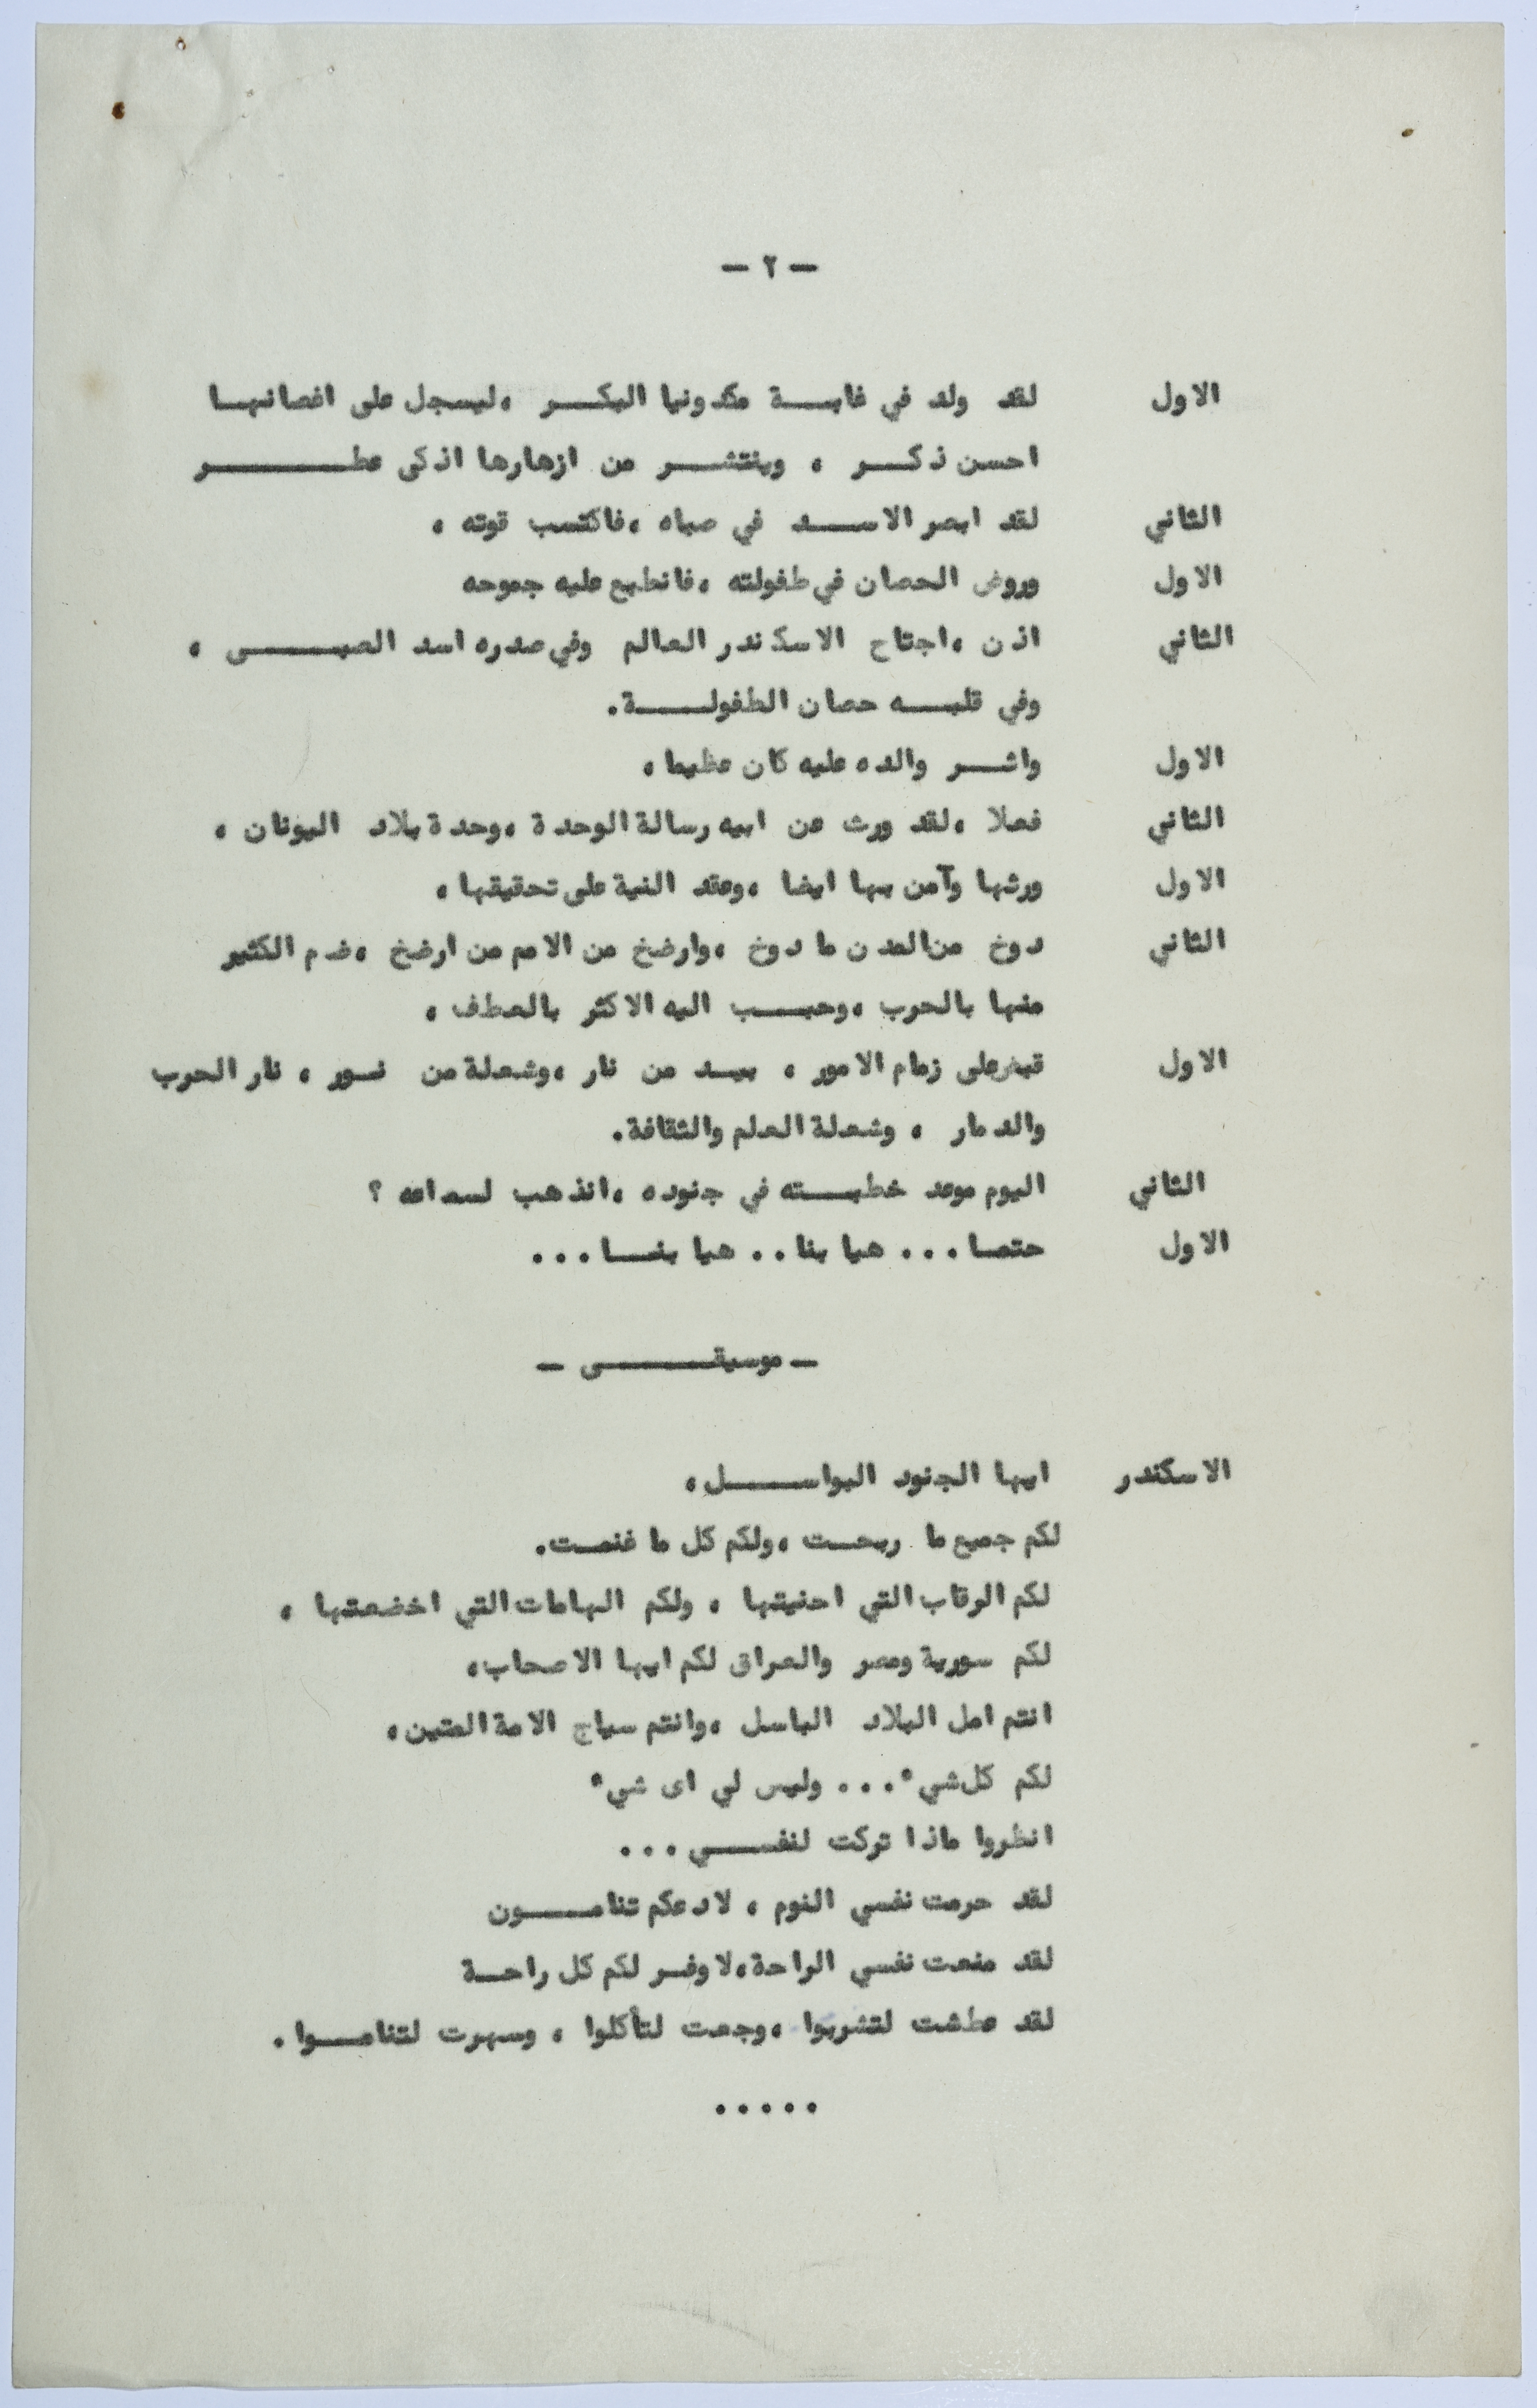 - ٢ -
الاول لقد ولد في غابة مكدونيا البكر ، ليسجل على اغصانها
احسن ذكر ، وينتشر من ازهارها اذكى عطر
الثاني لقد ابصر الاسد في صباه ، فاكتسب قوته ،
الاول وروض الحصان في طفولته ، فانطبع عليه جموحه
الثاني اذن ، اجتاح الاسكندر العالم وفي صدره اسد الصبى ،
وفي قلبه حصان الطفولة.
الاول واثر والده عليه كان عظيما ،
الثاني فعلا ، لقد ورث عن ابيه رسالة الوحدة ، وحدة بلاد اليونان ،
الاول ورثها وآمن بها ايضا ، وعقد النية على تحقيقها ،
الثاني دوخ من المدن ما دوخ ، وارضخ من الامم من ارضخ ، ضم الكثير
منها بالحرب ، وحبب اليه الاكثر بالعطف ،
الاول قبض على زمام الامور ، بيد من نار ، وشعلة من نور ، نار الحرب
والدمار ، وشعلة العلم والثقافة.
الثاني اليوم موعد خطبته في جنوده ، انذهب لسماعه ؟
الاول حتما ... هيا بنا .. هيا بنا ...
- موسيقى -
الاسكندر ايها الجنود البواسل ،
لكم جميع ما ربحت ، ولكم كل ما غنمت.
لكم الرقاب التي احنيتها ، ولكم الهامات التي اخضعتها ،
لكم سورية ومصر والعراق لكم ايها الاصحاب ،
انتم امل البلاد الباسل ، وانتم سياج الامة المتين ،
لكم كل شيء ... وليس لي اى شيء
انظروا ماذا تركت لنفسي ...
لقد حرمت نفسي النوم ، لادعكم تنامون
لقد منعت نفسي الراحة ، لاوفر لكم كل راحة
لقد عطشت لتشربوا ، وجعت لتأكلوا ، وسهرت لتناموا .
.....